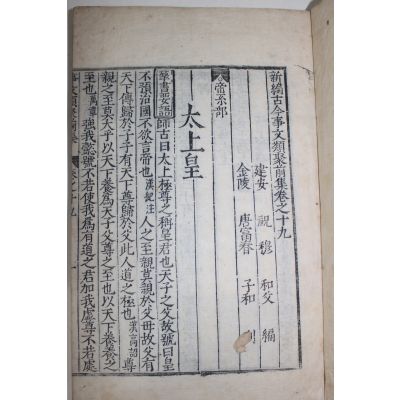 新編古今事文類聚前集卷之十九
建安 祝穆 和父 編
金陵 唐富春 子和
帝系部
太上皇
羣書要語 師古曰太上極尊之稱皇君也天子之父故號曰皇
不預治國不欲言帝也漢紀注 人之至親莫親於父母故父有
天下傳歸於子子有天下尊歸於父此人道之極也 漢高詔 尊
親之至莫大乎以天下養爲天子父尊之至也以天下養養之
至也 萬章 強我懿號不若使我爲有道之君加我虛尊不若處